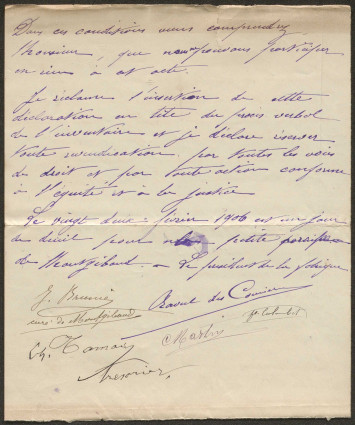 Dans ces conditions vous comprendrez
Monsieur, que nous ne pouvons participer
en rien à cet acte.
Je réclame l'insertion de cette
déclaration en tête du procès verbal
de l'inventaire et je déclare exercer
toute revendication par toutes les voies
de droit et par toute action conforme
à l'équité et à la justice
Le vingt deux février 1906 est un jour
de deuil pour notre petite paroisse
de Montgibaud - Le président de la fabrique
J. Brunie
curé de Montgibaud
Raoul des
Martin
Tresorier